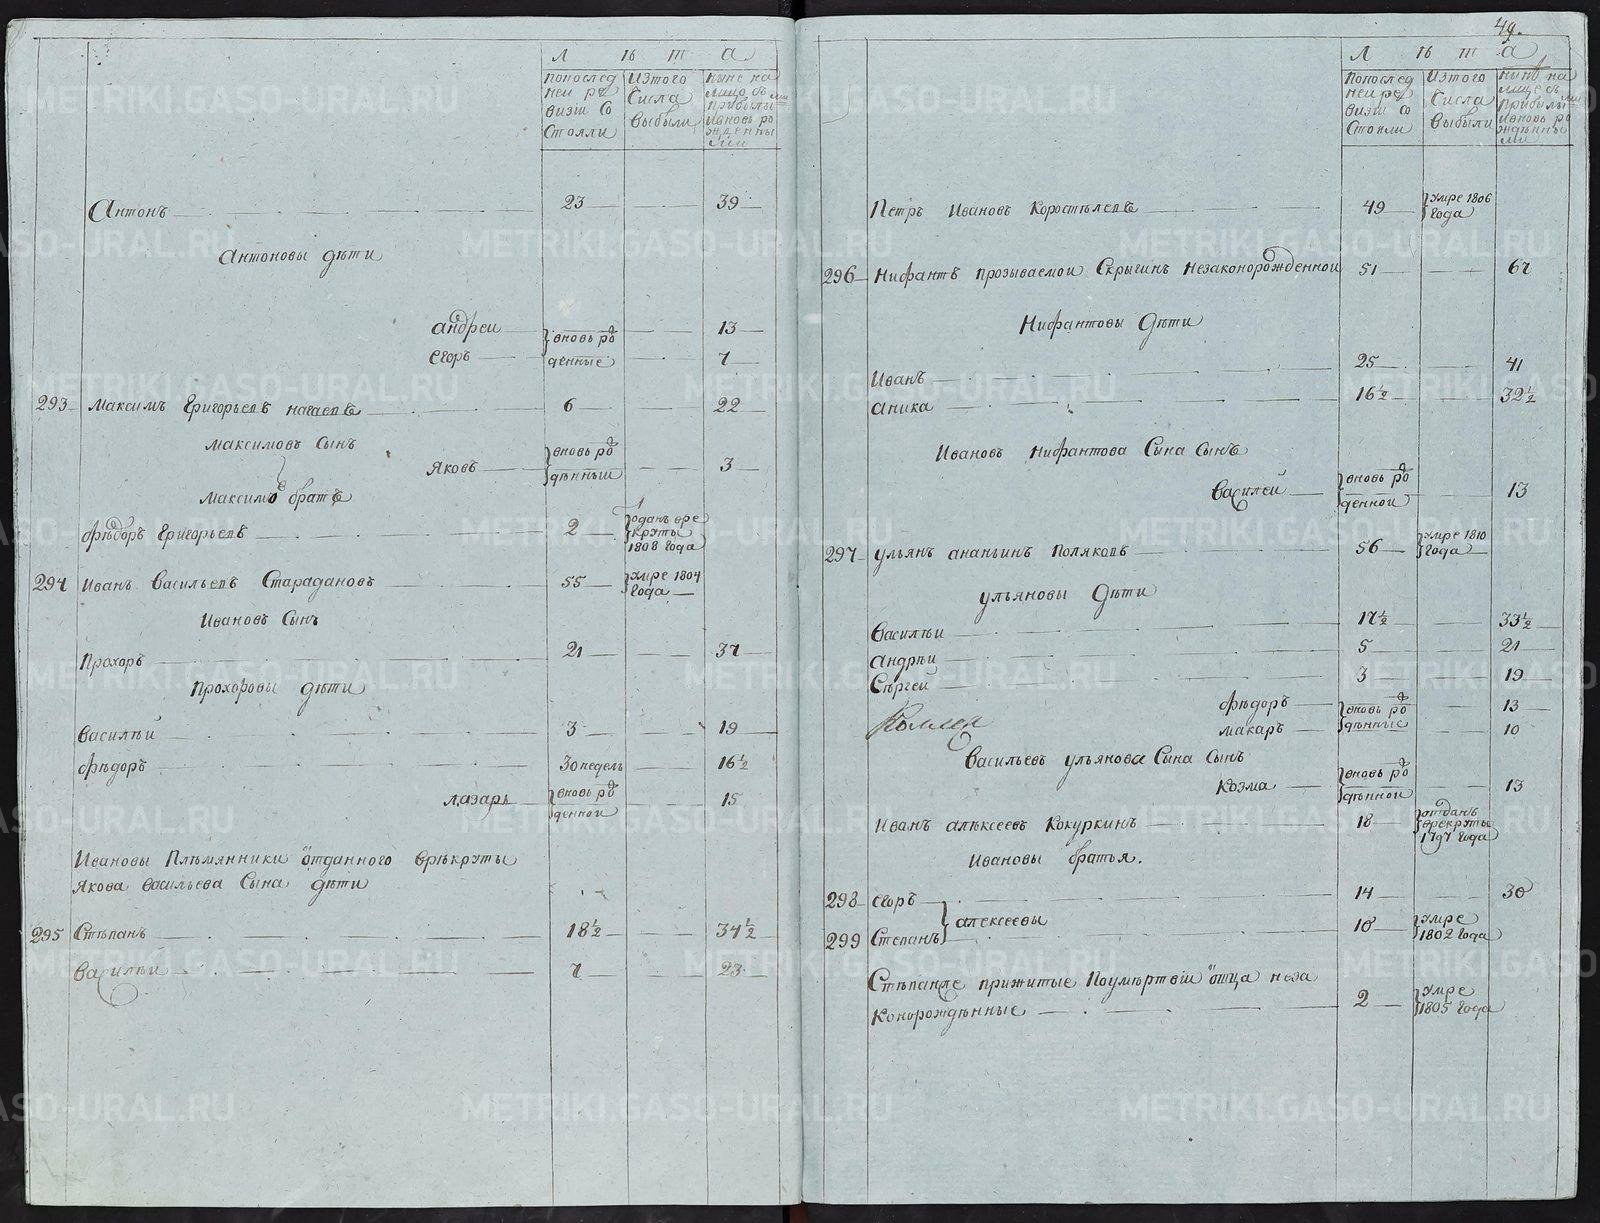 Л ѣ т а
попослед
неи ре
визіи со
стояли
изтого
числа
выбыли
ныне на
лицо съ
прибылы
ми
ивновь ро
жденны
ми
Антонъ 23 39
Антоновы дѣти
андреи вновь ро 13
егоръ жденные 7
293 Максимъ Григорьевъ нагаевъ 6 22
максимовъ сынъ
яковъ вновь ро
жденныи 3
максимо братъ
фѣдоръ Григорьевъ 2 оданъ вре
круты
1808 года
294 Иванъ Васильевъ Стараdaновъ 55 умре 1804
года
Ивановъ Сынъ
Прохоръ 21 37
Прохоровы дѣти
Василѣи 3 19
фѣдоръ 30 недель 16½
лазарь вновь ро 15
жденнои
Ивановы Плѣмянники отданного врѣкруты
Якова васильева Сына дѣти
295 Стѣпанъ 18½ 34½
Василѣи 7 23
49.
Л ѣ т а
попослед
неи ре
визіи со
стояли
изтого
числа
выбыли
нынѣ на
лице съ
прибылы
ми
ивновь ро
ждѣнны
ми
Петръ Ивановъ Коростѣлевъ 49 умре 1806
года
296 Нифантъ прозываемои Скрыгинъ незаконорожденнои 51 67
Нифантовы дѣти
Иванъ 25 41
аника 16½ 32½
Ивановъ Нифантова Сына Сынъ
Василеи вновь ро 13
жденнои
297 ульянъ ананьинъ поляковъ 56 умре 1810
года
ульяновы дѣти
Василѣи 17½ 33½
андрѣи 5 21
Сѣргеи 3 19
фѣдоръ вновь ро 13
макаръ ждѣнные 10
Васильевъ ульянова Сына Сынъ
козма вновь ро 13
ждѣннои
Иванъ алѣксеевъ Кокуркинъ 18 отданъ
врекруты
1797 года
Ивановы братья.
298 егоръ 14 30
алексеевы
299 Степанъ 10 умре
1802 года
Стѣпанъ прижитые Поумѣртвіи отца неза
Конорождѣнные 2 умре
1805 года